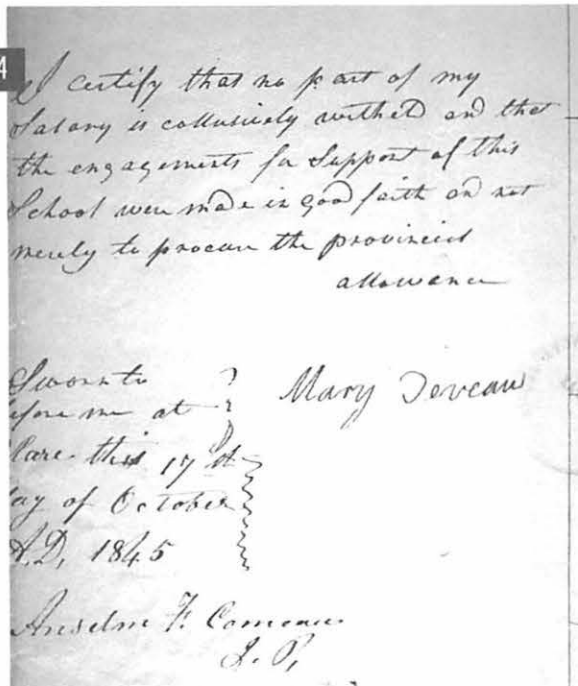 4
I certify that no part of my
Salary is collusively witheld and that
the engagements for Support of this
School were made in good faith and not
merely to procure the provincial
allowance
Sworn to
efore me at
lare this 17th
ay of October
A.D, 1845
Mary Deveau
Anselm F. Comeau
J. P,